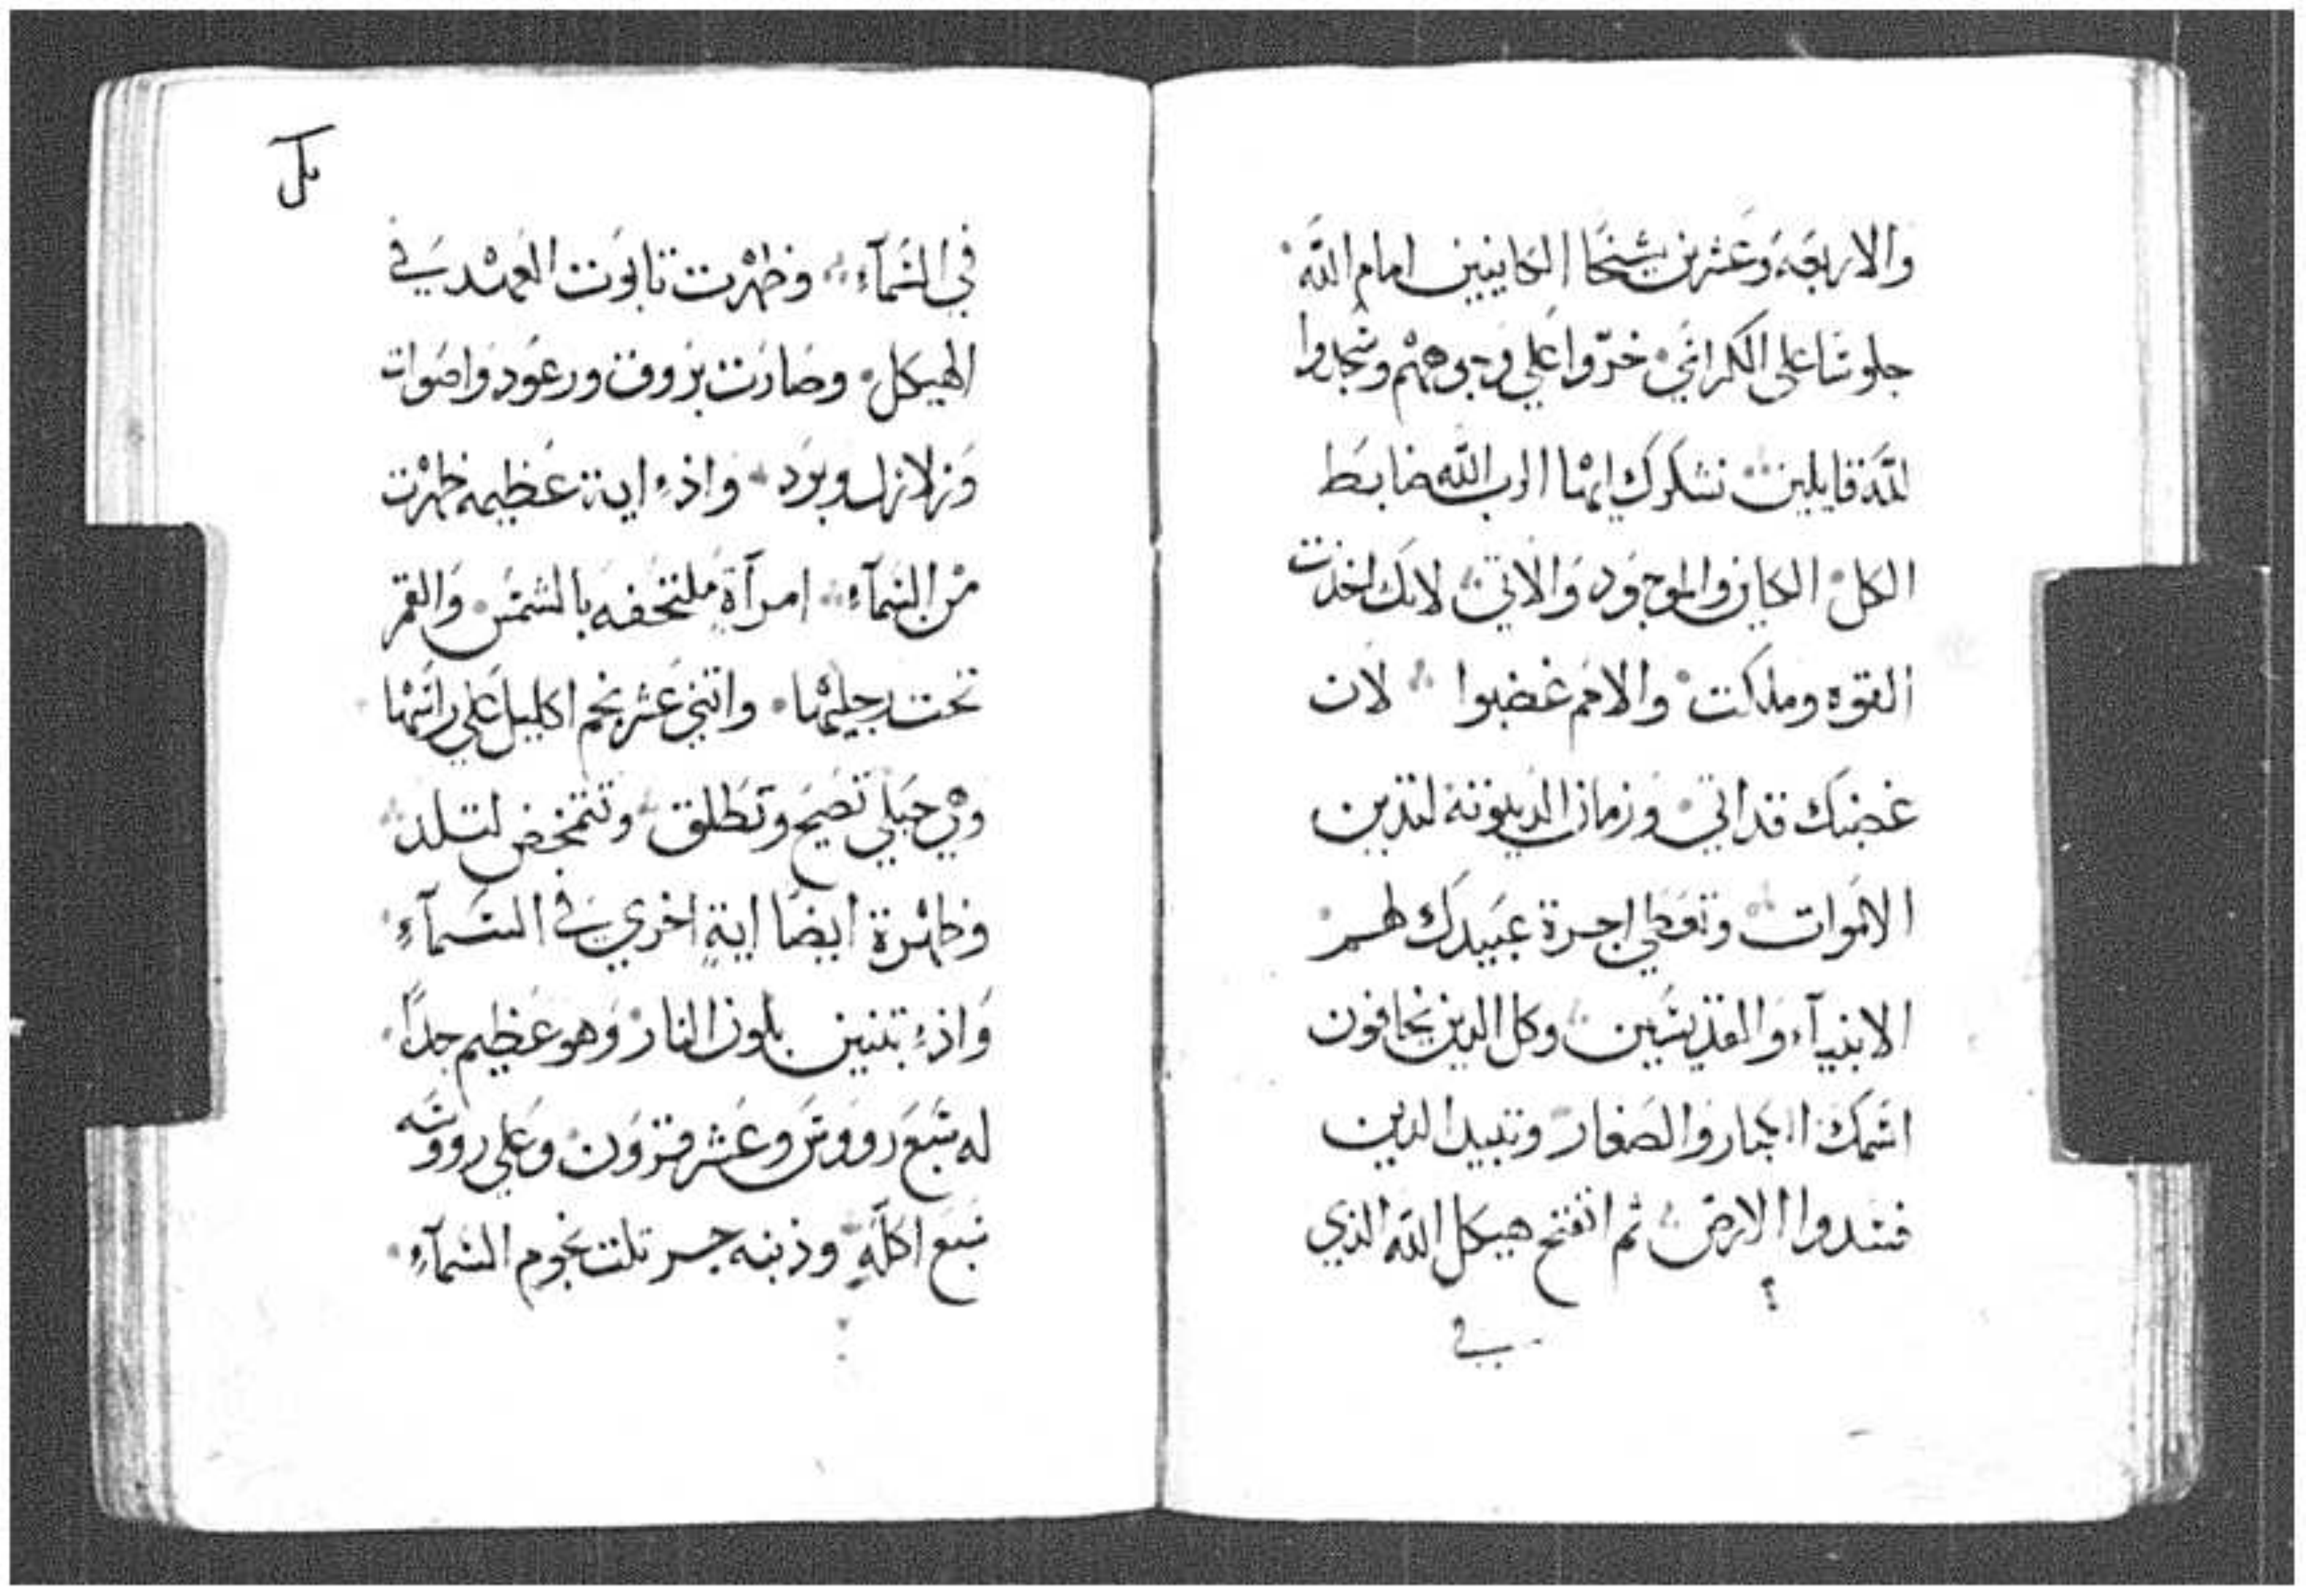 والاربعه وعشرين شيخا الكاينين امام الله
جلوسا على الكراسي خروا علي وجوههم وسجدوا
لله قايلين نشكرك ايها الرب الله ضابط
الكل الكاين والموجود والاتي لانك اخذت
القوه وملكت والامم غضبوا لان
غضبك قد اتي وزمان الدينونة لتدين
الاموات وتعطي اجرة عبيدك لهم
الانبيآء والقديسين وكل الدين يخافون
اسمك الكبار والصغار وتبيد الدين
فسدوا الارض ثم انفتح هيكل الله الذي
في
في السمآء وظهرت تابوت العهد في
الهيكل وصارت بروق ورعود واصوات
وزلازل وبرد واذء اية عظيمه ظهرت
من السمآء امرآة ملتحفه بالشمس والقمر
تحت رجليها واتني عشر نجم اكليل علي راسها
وهي حبلي تصيح وتطلق وتتمخض لتلد
وظهرة ايضا اية اخري في السمآء
واذء بتنين بلون النار وهو عظيم جدا
له سبع رووس وعشر قرون وعلي رووسه
سبع اكلة وذنبه جر تلت نجوم السمآء